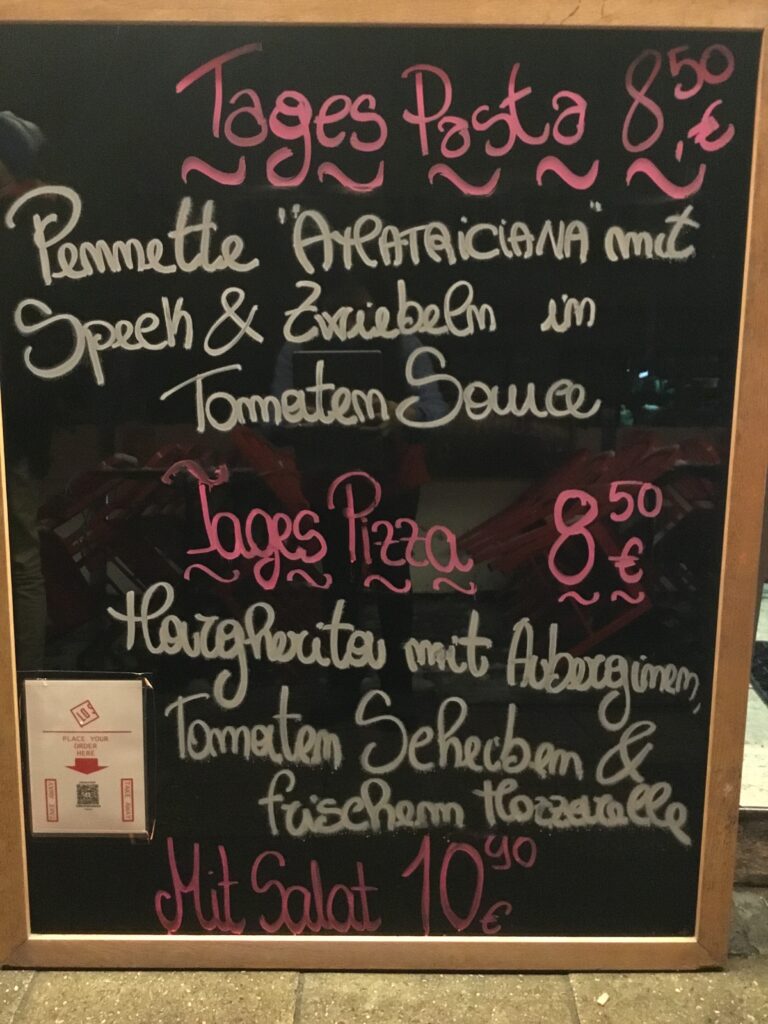 Tages Pasta 8,50 €
Pennette "AMATRICIANA" mit
Speck & Zwiebeln in
Tomaten Sauce
Tages Pizza 8 50 €
Margherita mit Auberginen,
Tomaten Scheiben &
frischem Mozzarella
Mit Salat 10 90 €
PLACE YOUR
ORDER
HERE
TAKE AWAY
TAKE AWAY